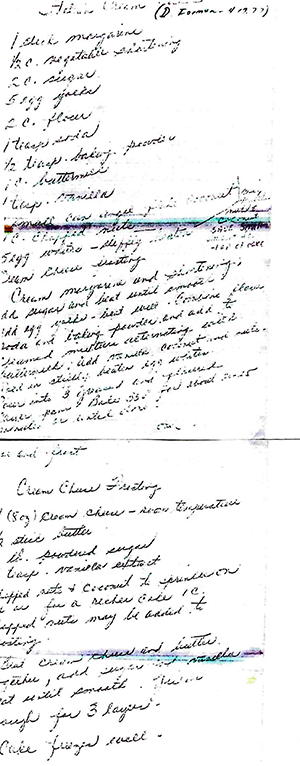 Cream (D. Forman - 4.17.77)
1 stick margarine
1/2 c. vegetable shortening
2 c. sugar
5 egg yolks
2 c. flour
1 teasp. soda
1/2 teasp. baking powder
1 c. buttermilk
1 teasp. vanilla
small can angel flake coconut
1 c. chopped nuts
5 egg whites - stiffly beaten
Cream cheese frosting
Cream margarine and shortening,
add sugar and beat until smooth.
add egg yolks - beat well. Combine flour
soda and baking powder and add to
creamed mixture alternating with
buttermilk. add vanilla, coconut and nuts.
Fold in stiffly beaten egg whites.
Pour into 3 greased and floured
layer pans. Bake 350° for about 20-25
minutes or until done.
and frost
Cream Cheese Frosting
(8 oz) cream cheese - room temperature
stick butter
lb. powdered sugar
teasp. vanilla extract
chopped nuts & coconut to sprinkle on
for a richer cake 1 c.
chopped nuts may be added to
frosting.
Beat cream cheese and butter
together, add sugar and vanilla
beat until smooth.
enough for 3 layers.
Cake freezes well.